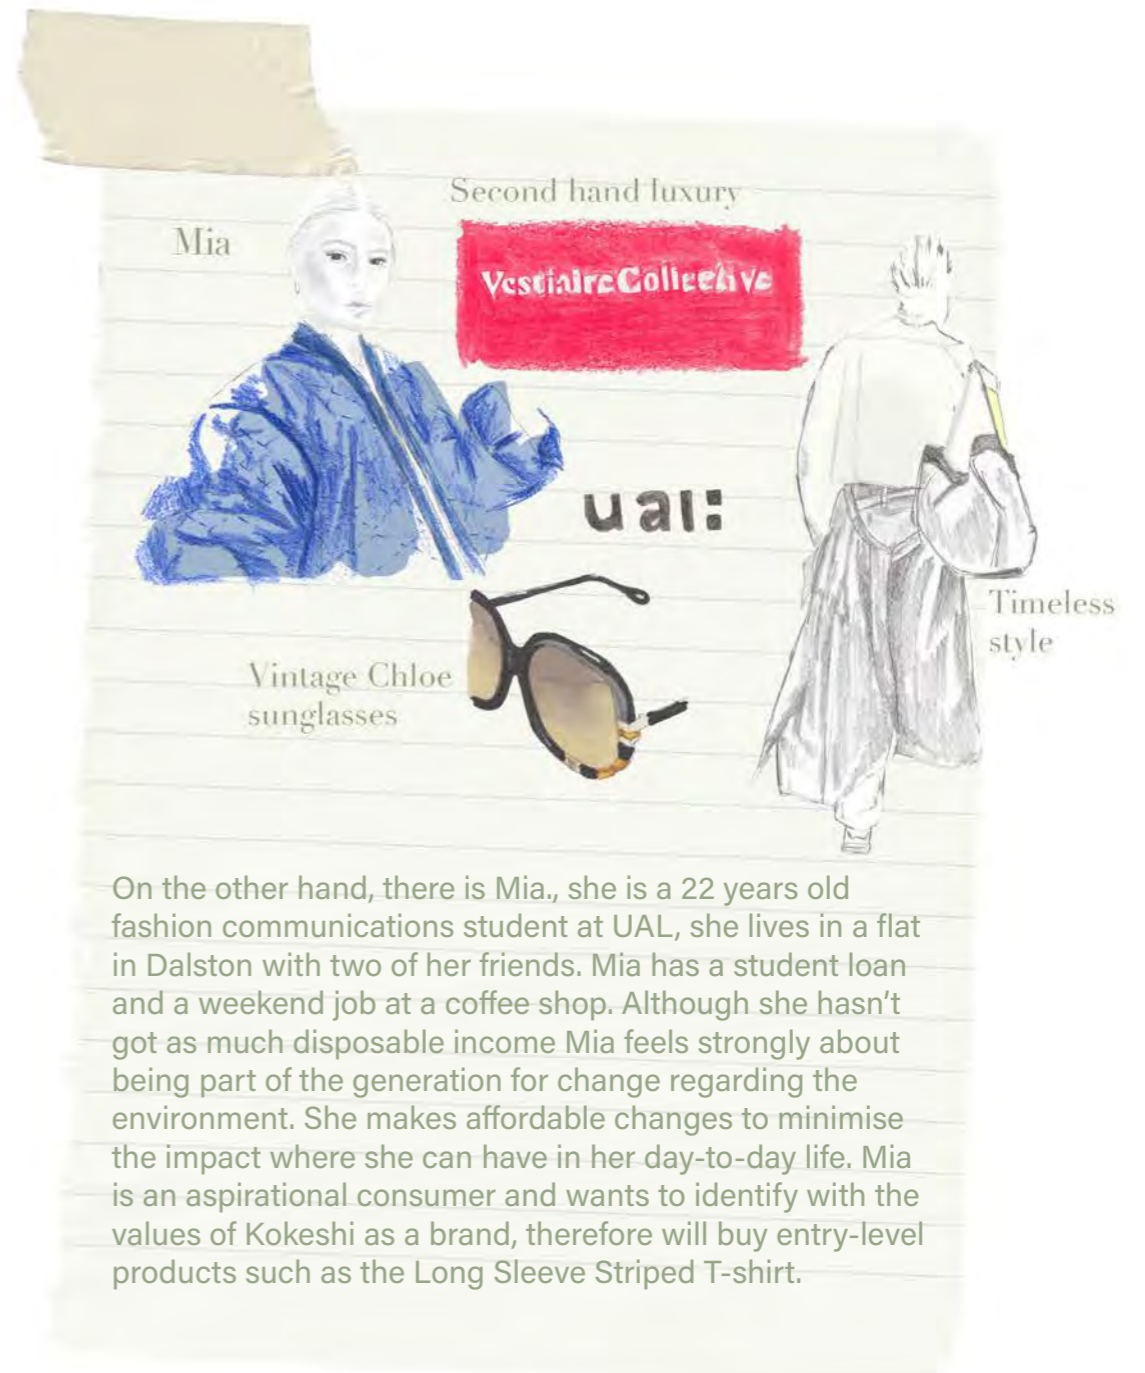 Second hand luxury
Mia
VestiaireCollective
ual:
Timeless
style
Vintage Chloe
sunglasses
On the other hand, there is Mia., she is a 22 years old
fashion communications student at UAL, she lives in a flat
in Dalston with two of her friends. Mia has a student loan
and a weekend job at a coffee shop. Although she hasn’t
got as much disposable income Mia feels strongly about
being part of the generation for change regarding the
environment. She makes affordable changes to minimise
the impact where she can have in her day-to-day life. Mia
is an aspirational consumer and wants to identify with the
values of Kokeshi as a brand, therefore will buy entry-level
products such as the Long Sleeve Striped T-shirt.